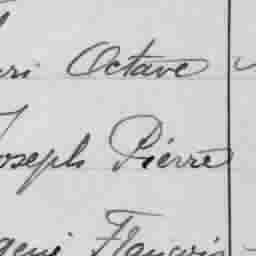 ri Octave
Joseph Pierre
gene François